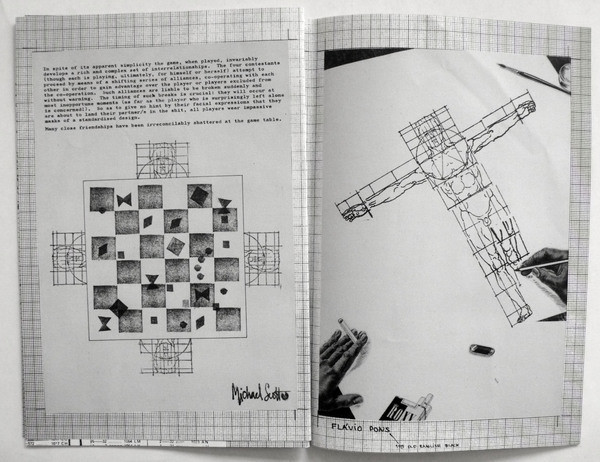 In spite of its apparent simplicity the game, when played, invariably
develops a rich and complex set of interrelationships. The four contestants
(though each is playing, ultimately, for himself or herself) attempt to
proceed by means of a shifting series of alliances, co-operating with each
other in order to gain advantage over the player or players excluded from
the co-operation. Such alliances are liable to be broken suddenly and
without warning. The timing of such breaks is crucial: they will occur at
most inopportune moments (as far as the player who is surprisingly left alone
is concerned). So as to give no hint by their facial expressions that they
are about to land their partner/s in the shit, all players wear impassive
masks of a standardised design.
Many close friendships have been irreconcilably shattered at the game table.
Michael Scott
FLAVIO PONS